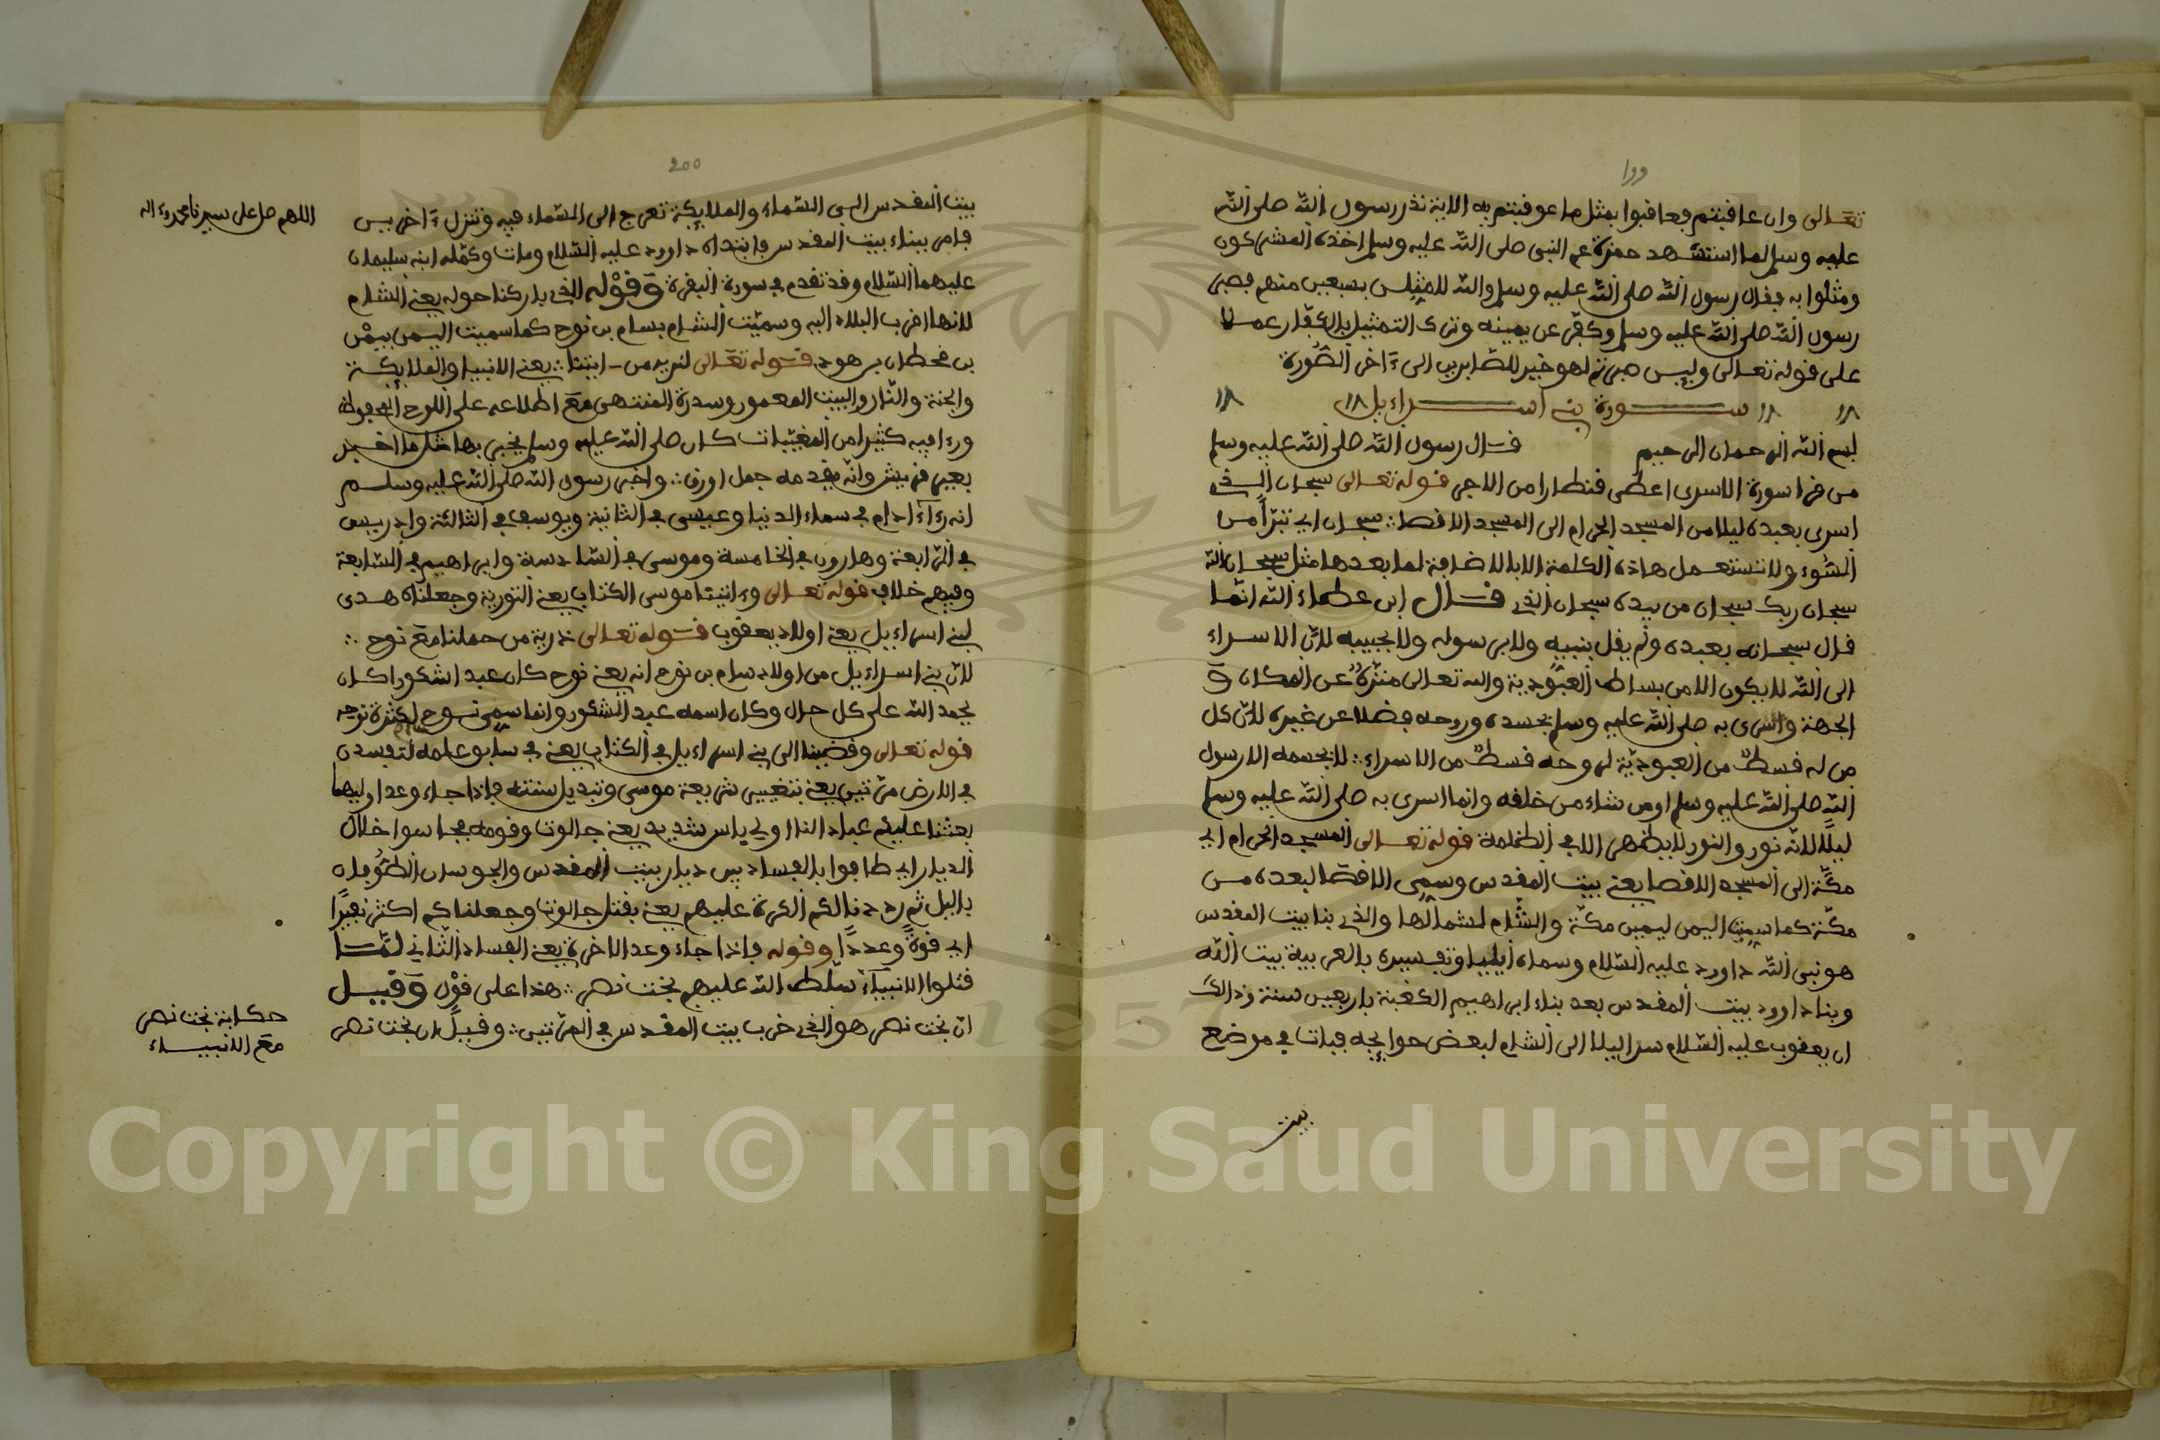 تعالى وان عاقبتم فعاقبوا بمثل ما عوقبتم به الاية نذر رسول الله صلى الله
عليه وسلم لما استشهد حمزة عم النبي صلى الله عليه وسلم اخذه المشركون
ومثلوا به فقال رسول الله صلى الله عليه وسلم والله للامثلن بسبعين منهم فصبر
رسول الله صلى الله عليه وسلم وكفر عن يمينه وترك التمثيل بالكفار عملا
على قوله تعالى وليس صبرتم لهو خير للصابرين الى ءاخر السورة
سورة بني اسراءيل
بسم الله الرحمان الرحيم قال رسول الله صلى الله عليه وسلم
من قرا سورة الاسرى اعطى قنطارا من الاجر قوله تعالى سبحان الذي
اسرى بعبده ليلا من المسجد الحرام الى المسجد الاقصا سبحان اي تبرأ من
السوء ولا تستعمل هاذه الكلمة الا بالاضافة لما بعدها مثل سبحان الله
سبحان ربك سبحان من بيده سبحان الذي قال ابن عطاء الله انما
قال سبحانه بعبده ولم يقل بنبيه ولا برسوله ولا بحبيبه لان الاسراء
الى الله لا يكون الا من بساط العبودية والله تعالى منزه عن المكان و
الجهة واسرى به صلى الله عليه وسلم بجسده وروحه فضلا عن غيره لان كل
من له قسط من العبودية لروحه قسط من الاسراء لا بجسمه الا رسول
الله صلى الله عليه وسلم او من شاء من خلقه وانما اسرى به صلى الله عليه وسلم
ليلا لانه نور والنور لا يظهر الا في الظلمة قوله تعالى المسجد الحرام اي
مكة الى المسجد الاقصا يعني بيت المقدس وسمي الاقصا لبعده من
مكة كما سميت اليمن ليمين مكة والشام لشمالها والذي بنا بيت المقدس
هو نبي الله داوود عليه السلام وسماه ايليا وتفسيره بالعربية بيت الله
وبنا داوود بيت المقدس بعد بناء ابراهيم الكعبة باربعين سنة وذالك
ان يعقوب عليه السلام سرا ليلا الى الشام لبعض حوايجه فبات في موضع
بيت
200
بيت المقدس الى السماء والملايكة تعرج الى السماء فيه وتنزل ءاخرين
فامر ببناء بيت المقدس فابتداه داوود عليه السلام ومات وكمله ابنه سليمان
عليهما السلام وقد تقدم في سورة البقرة وقوله الذي باركنا حوله يعني الشام
لانها اقرب البلاد اليه وسميت الشام بسام بن نوح كما سميت اليمن بيمن
بن قحطان بن هود قوله تعالى لنريه من ايتنا يعني الانبيا والملايكة
والجنة والنار والبيت المعمور وسدرة المنتهى مع اطلاعه على اللوح المحفوظ
ورءا فيه كثيرا من المغيبات كان صلى الله عليه وسلم يخبر بها مثل ما اخبر
بعير قريش وانه يقدمه جمل اورق واخبر رسول الله صلى الله عليه وسلم
انه رءا ادام في سماء الدنيا وعيسى في الثانية ويوسف في الثالثة وادريس
في الرابعة وهارون في الخامسة وموسى في السادسة وابراهيم في السابعة
وفيهم خلاف قوله تعالى وءاتينا موسى الكتاب يعني التورية وجعلناه هدى
لبني اسراءيل يعني اولاد يعقوب قوله تعالى ذرية من حملنا مع نوح
لان بني اسراءيل من اولاد سام بن نوح انه يعني نوح كان عبدا شكورا كان
يحمد الله على كل حال وكان اسمه عبد الشكور وانما سمي نوح لكثرة نوحه
قوله تعالى وقضينا الى بني اسراءيل في الكتاب يعني في سابق علمه لتفسدن
في الارض مرتين يعني بتغيير شريعة موسى وتبديل سنته فاذا جاء وعد اوليهما
بعثنا عليكم عبادا لنا اولي باس شديد يعني جالوت وقومه فجاسوا خلال
الديار اي طافوا بالفساد بين ديار بيت المقدس والجوسان الطوفان
باليل ثم رددنا لكم الكرة عليهم يعني بقتل جالوت وجعلناكم اكثر نفيرا
اي قوة وعددا وقوله فاذا جاء وعد الاخرة يعني الفساد الثاني لما
قتلوا الانبياء سلط الله عليهم بخت نصر هذا على قول وقيل
ان بخت نصر هو الذي خرب بيت المقدس في المرتين وقيل ان بخت نصر
اللهم صل على سيدنا محمد وءاله
حكاية بخت نصر
مع الانبياء
Copyright © King Saud University
1957